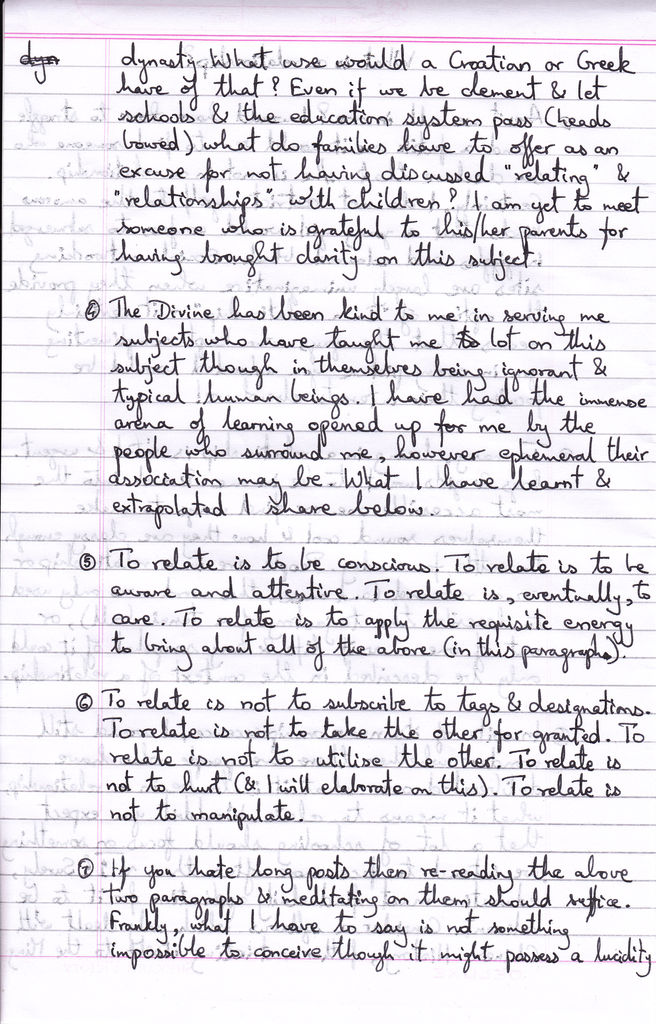 dyn
dynasty. What use would a Croatian or Greek
have of that? Even if we be clement & let
schools & the education system pass (heads
bowed) what do families have to offer as an
excuse for not having discussed "relating" &
"relationships" with children? I am yet to meet
someone who is grateful to his/her parents for
having brought clarity on this subject.
④ The Divine has been kind to me in serving me
subjects who have taught me lot on this
subject though in themselves being ignorant &
typical human beings. I have had the immense
arena of learning opened up for me by the
people who surround me, however ephemeral their
association may be. What I have learnt &
extrapolated I share below.
⑤ To relate is to be conscious. To relate is to be
aware and attentive. To relate is, eventually, to
care. To relate is to apply the requisite energy
to bring about all of the above (in this paragraph).
⑥ To relate is not to subscribe to tags & designations.
To relate is not to take the other for granted. To
relate is not to utilise the other. To relate is
not to hurt (& I will elaborate on this). To relate is
not to manipulate.
⑦ If you hate long posts then re-reading the above
two paragraphs & meditating on them should suffice.
Frankly, what I have to say is not something
impossible to conceive though it might possess a lucidity